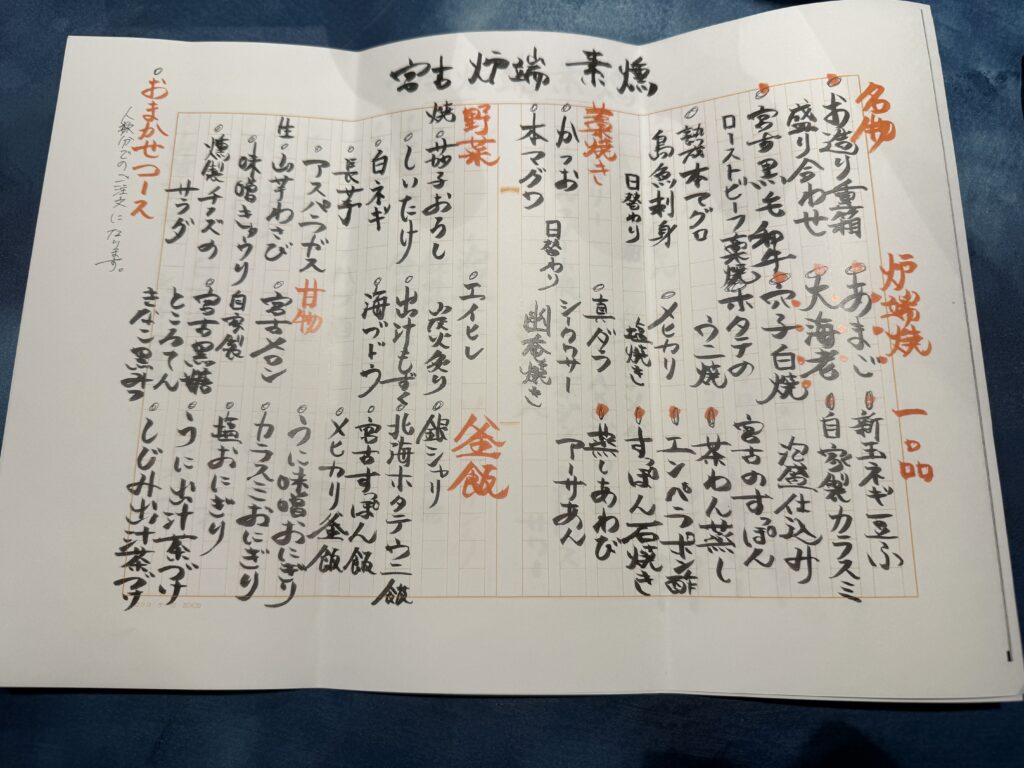 宮古 炉端 素燻
名物
お造り重箱
盛り合わせ
宮古黒毛和牛
ローストビーフ藁焼
熟成本マグロ
島魚刺身
日替わり
藁焼き
かつお
本マグロ
日替わり
炉端焼
あまご
大海老
穴子白焼
ホタテの
ウニ焼
メヒカリ
塩焼き
真ダラ
シークワサー
幽庵焼き
一品
新玉ネギ豆ふ
自家製カラスミ
泡盛仕込み
宮古のすっぽん
茶わん蒸し
エンペラポン酢
すっぽん石焼き
蒸しあわび
アーサあん
野菜
焼
茄子おろし
しいたけ
白ネギ
長芋
アスパラガス
生
山芋わさび
味噌きゅうり
燻製チーズの
サラダ
エイヒレ
炭火炙り
出汁もずく
海ブドウ
甘物
宮古メロン
自家製
宮古黒糖
ところてん
きなこ黒みつ
釜飯
銀シャリ
北海ホタテウニ飯
宮古すっぽん飯
メヒカリ釜飯
うに味噌おにぎり
カラスミおにぎり
塩おにぎり
うに出汁茶づけ
しじみ出汁茶づけ
おまかせコース
人数分でのご注文になります。